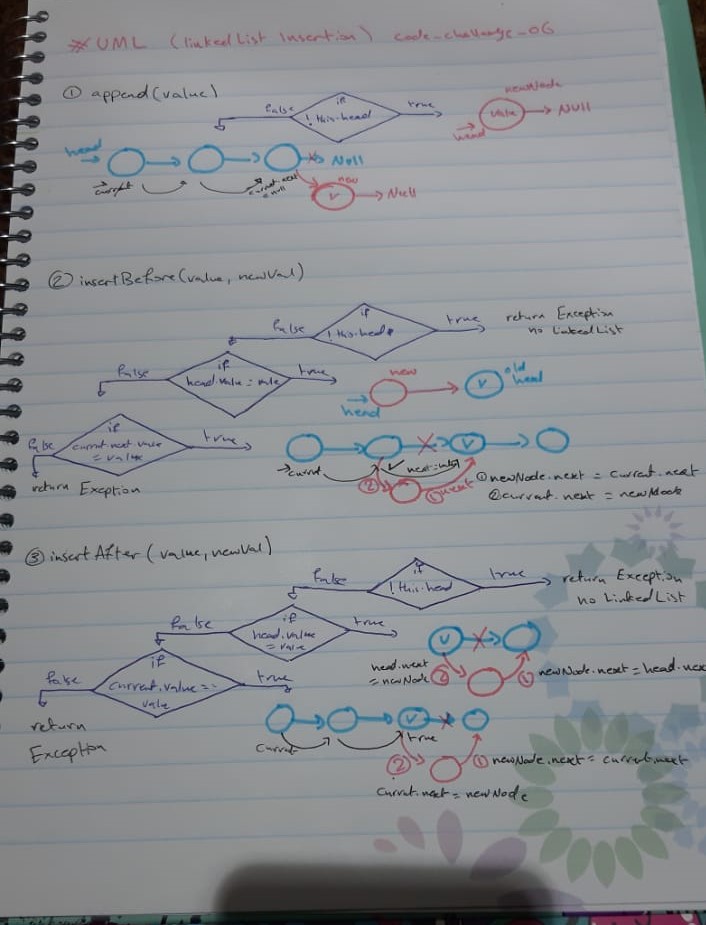 * UML (linkedList Insertion) code-challenge-06
① append(value)
if
! this.head
false
true
newNode
value
NUll
head
head
Null
current
current.next
= null
new
v
Null
② insertBefore(value, newVal)
if
! this.head
false
true
return Exception
no LinkedList
if
head.value = value
false
true
new
head
v
old
head
if
current.next.value
= value
false
true
return Exption
current
v
②
① next
① newNode.next = current.next
② current.next = newNode
③ insertAfter (value, newVal)
if
! this.head
false
true
return Exception
no LinkedList
if
head.value
= value
false
true
v
head.next
= newNode
②
① newNode.next = head.nex
if
current.value ==
value
false
true
return
Exception
current
v
true
②
① newNode.next = current.next
current.next = newNode